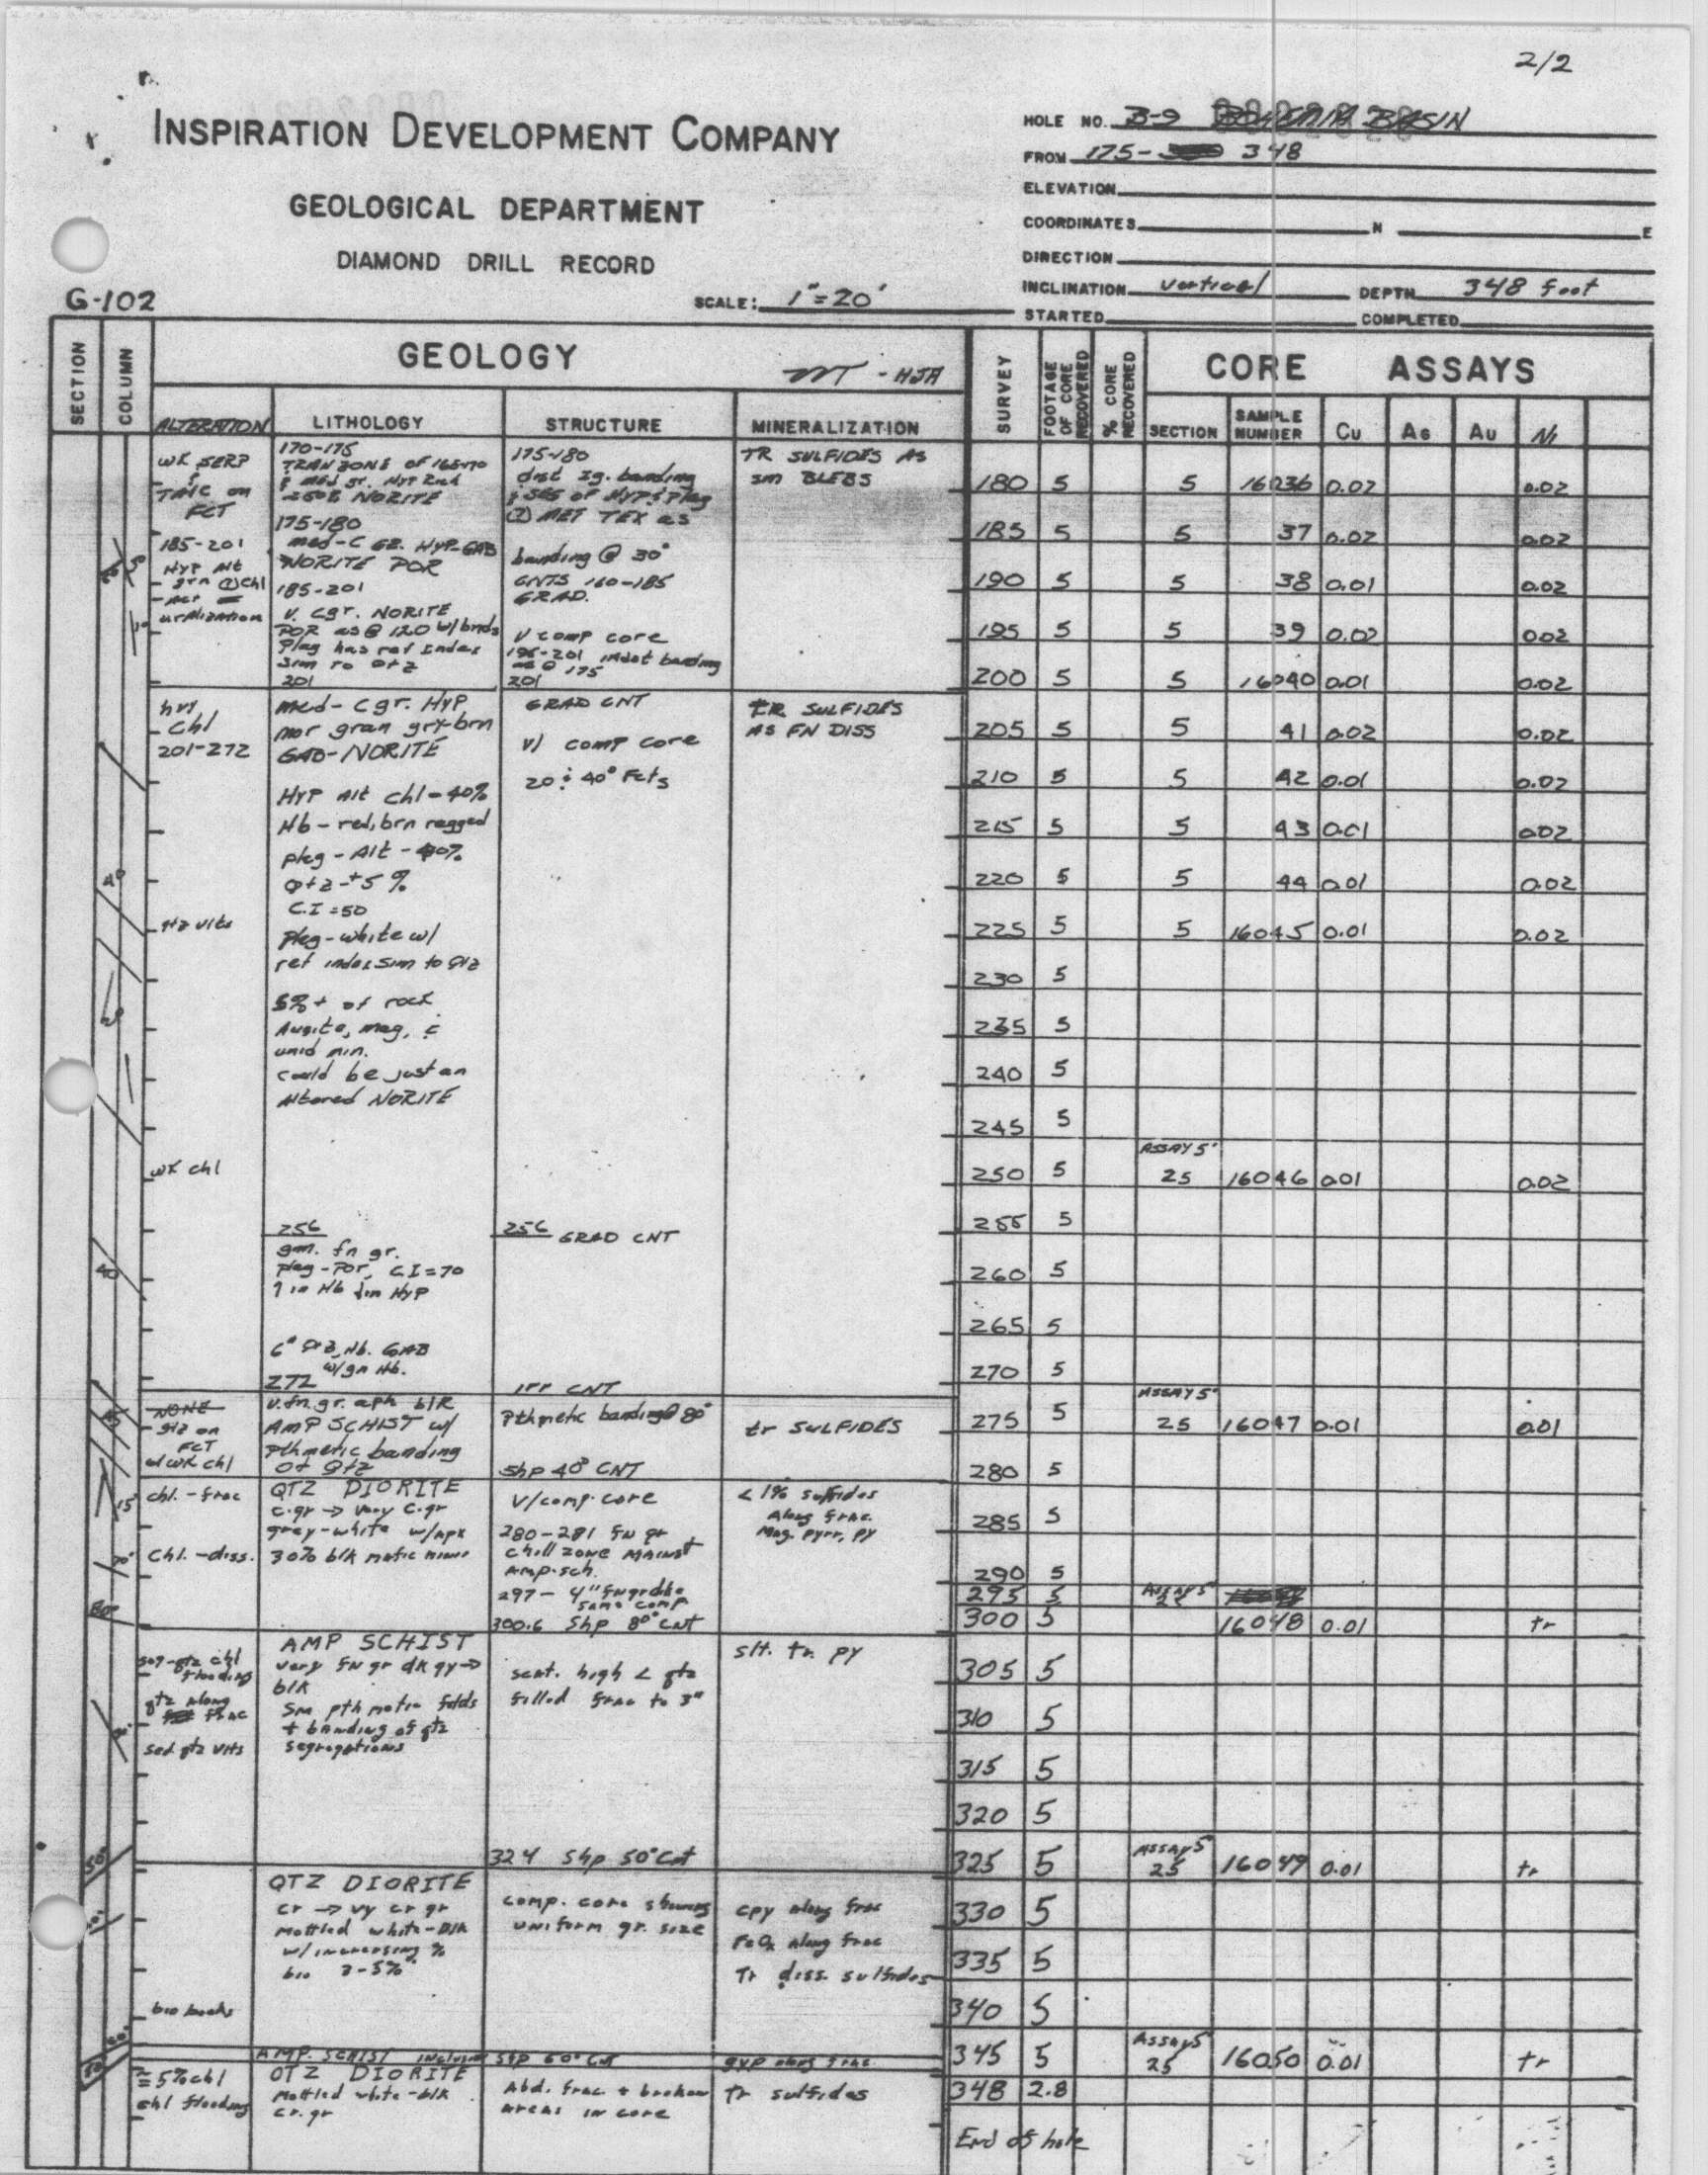 2/2
INSPIRATION DEVELOPMENT COMPANY
GEOLOGICAL DEPARTMENT
DIAMOND DRILL RECORD
G-102
SCALE: 1"=20'
HOLE NO. B-9 BOHEMIA BASIN
FROM 175- 348
ELEVATION
COORDINATES N E
DIRECTION
INCLINATION vertical DEPTH 348 feet
STARTED COMPLETED
SECTION
COLUMN
GEOLOGY
- HJA
ALTERATION
LITHOLOGY
STRUCTURE
MINERALIZATION
SURVEY
FOOTAGE OF CORE RECOVERED
% CORE RECOVERED
CORE ASSAYS
SECTION
SAMPLE NUMBER
Cu
As
Au
Ni
WK SERP
TALC on
FCT
185-201
HYP Alt
uralization
170-175
TRAN ZONE OF 165-170
& med gr. HYP Rich
NORITE
175-180
med-C GR. HYP-GAB
NORITE POR
185-201
V. Cgr. NORITE
POR as @ 120 w/bnds
Plag has ref index
sim to Qtz
201
175-180
dist Ig. banding
& SEG OF HYP & Plag
MET TEX as
banding @ 30°
CNTS 160-185
GRAD.
V comp core
196-201 indst banding
as @ 175
201
TR SULFIDES AS
sm BLEBS
180 5 5 16036 0.02 0.02
185 5 5 37 0.02 0.02
190 5 5 38 0.01 0.02
195 5 5 39 0.02 0.02
200 5 5 16040 0.01 0.02
hvy
Chl
201-272
qtz vlts
wk chl
med- Cgr. HYP
nor gran gry-brn
GAB-NORITE
HYP Alt chl-40%
Hb-red, brn ragged
plag-Alt-40%
Qtz-+5%
C.I=50
Plag-white w/
ref index sim to Qtz
5%+ of rock
Augite, mag, &
unid min.
could be just an
Altered NORITE
GRAD CNT
V/ comp core
20 & 40° Fcts
TR SULFIDES
AS FN DISS
205 5 5 41 0.02 0.02
210 5 5 42 0.01 0.02
215 5 5 43 0.01 0.02
220 5 5 44 0.01 0.02
225 5 5 16045 0.01 0.02
230 5
235 5
240 5
245 5
ASSAY 5'
250 5 25 16046 0.01 0.02
256
gn. fn gr.
plag-Por, CI=70
↑ in Hb ↓ in HYP
6" Qtz, Hb. GAB
w/gn Hb.
272
256 GRAD CNT
irr CNT
255 5
260 5
265 5
270 5
ASSAY 5'
275 5 25 16047 0.01 0.01
280 5
NONE
FCT
w/wk chl
v.fn.gr. aph blk
AMP SCHIST w/
Pthmetic banding
of Qtz
Pthmetic banding @ 80°
Shp 40° CNT
tr SULFIDES
chl.-frac
Chl.-diss.
QTZ DIORITE
c.gr → very c.gr
grey-white w/apx
30% blk mafic mins
V/comp. core
280-281 fn gr
chill zone against
Amp. sch.
297- 4" fn gr dike
same comp
300.6 Shp 80° CNT
<1% sulfides
Along frac.
Mag. pyrr, py
285 5
290 5
295 5 Assay 5' 25
300 5 16048 0.01 tr
seg-qtz chl
flooding
qtz along
frac
sed qtz vlts
AMP SCHIST
very fn gr dk gy→
blk
Sm pthmatic folds
+ banding of qtz
segregations
scat. high < qtz
filled frac to 3"
324 Shp 50° Cnt
slt. tr. py
305 5
310 5
315 5
320 5
325 5 Assay 5' 25 16049 0.01 tr
bio books
QTZ DIORITE
cr → vy cr gr
Mottled white-blk
w/increasing %
bio 3-5%
comp. core shows
uniform gr. size
cpy along frac
FeOx along frac
Tr diss. sulfides
330 5
335 5
340 5
345 5 Assay 5' 25 16050 0.01 tr
AMP. SCHIST inclusion Shp 60° Cnt
gyp along frac.
≈5% chl
chl flooding
QTZ DIORITE
Mottled white-blk
cr. gr
Abd. frac + broken
areas in core
Tr sulfides
348 2.8
End of hole